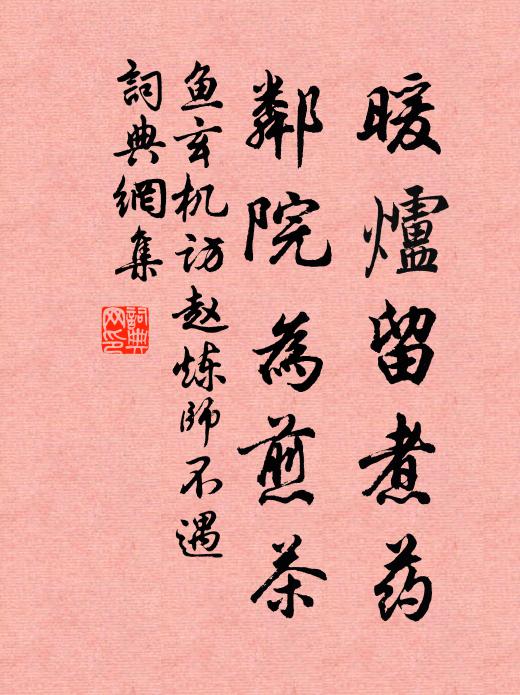 暖爐留煮药
鄰院為煎茶
鱼玄机访赵炼师不遇
詞典網集
詞典
网印